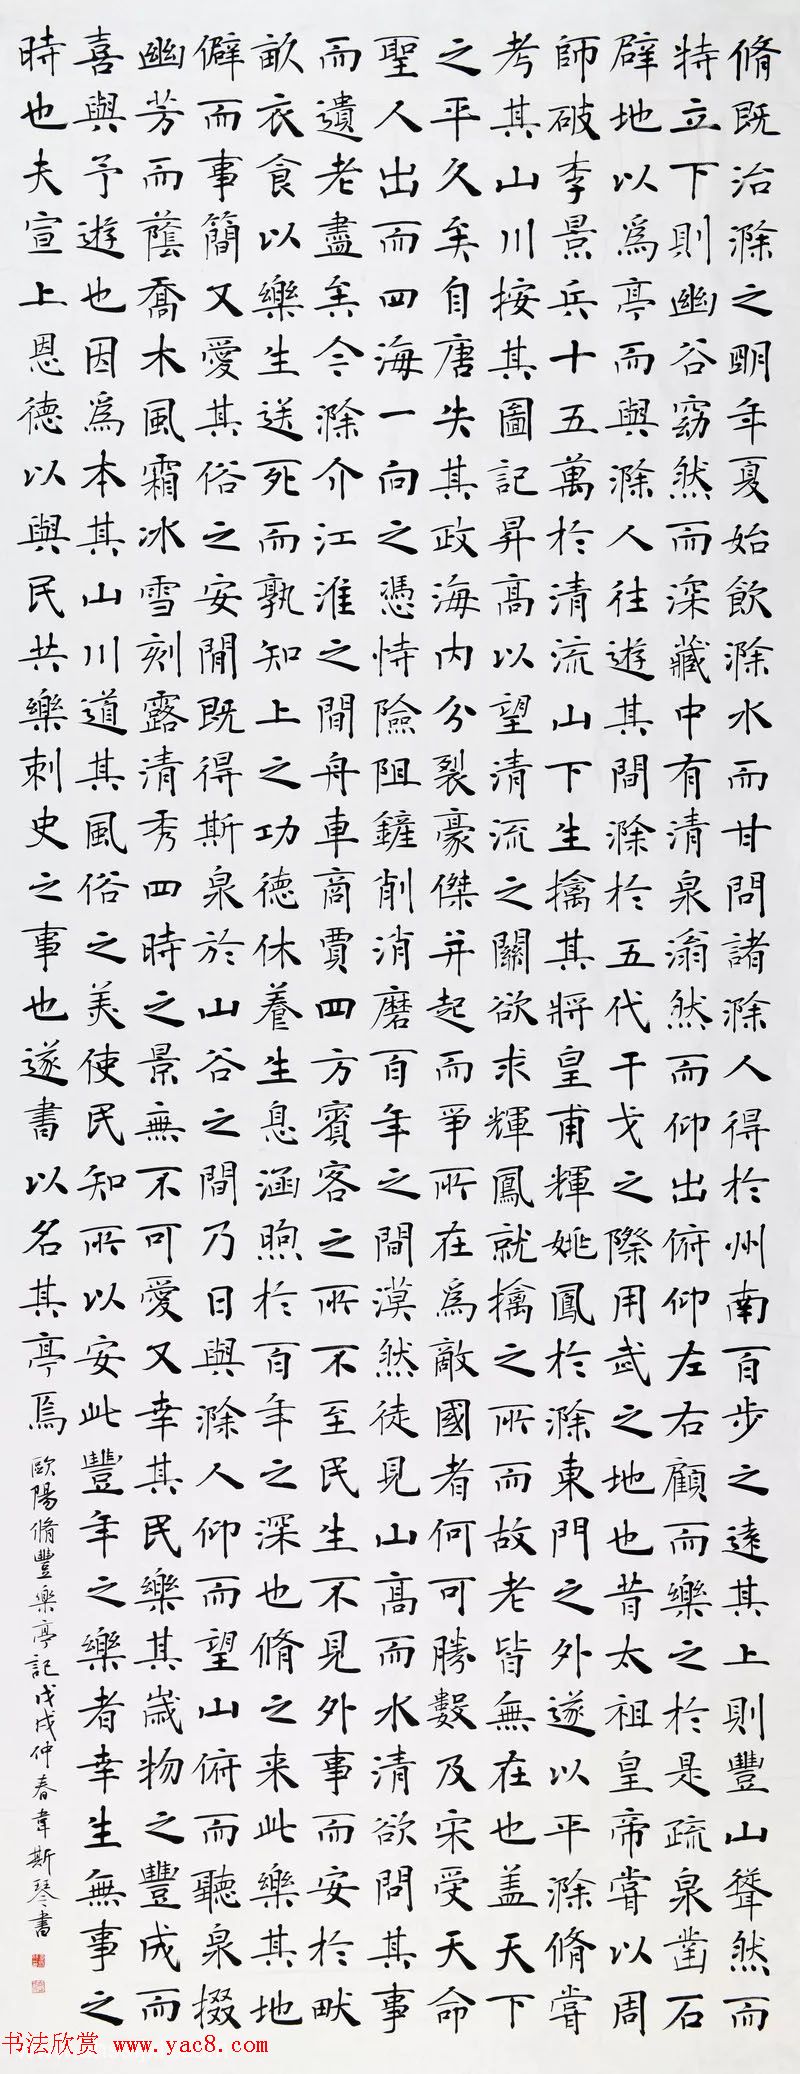 脩既治滁之明年夏始飲滁水而甘問諸滁人得於州南百步之遠其上則豐山聳然而
特立下則幽谷窈然而深藏中有清泉滃然而仰出俯仰左右顧而樂之於是疏泉鑿石
辟地以爲亭而與滁人往遊其間滁於五代干戈之際用武之地也昔太祖皇帝嘗以周
師破李景兵十五萬於清流山下生擒其將皇甫輝姚鳳於滁東門之外遂以平滁脩嘗
考其山川按其圖記昇高以望清流之關欲求輝鳳就擒之所而故老皆無在也蓋天下
之平久矣自唐失其政海内分裂豪傑并起而爭所在爲敵國者何可勝數及宋受天命
聖人出而四海一向之憑恃險阻鏟削消磨百年之間漠然徒見山高而水清欲問其事
而遺老盡矣今滁介江淮之間舟車商賈四方賓客之所不至民生不見外事而安於畎
畝衣食以樂生送死而孰知上之功德休養生息涵煦於百年之深也脩之来此樂其地
僻而事簡又愛其俗之安閒既得斯泉於山谷之間乃日與滁人仰而望山俯而聽泉掇
幽芳而蔭喬木風霜冰雪刻露清秀四時之景無不可愛又幸其民樂其歲物之豐成而
喜與予遊也因爲本其山川道其風俗之美使民知所以安此豐年之樂者幸生無事之
時也夫宣上恩德以與民共樂刺史之事也遂書以名其亭焉
歐陽脩豐樂亭記戊戌仲春韋斯琴書
书法欣赏 www.yac8.com